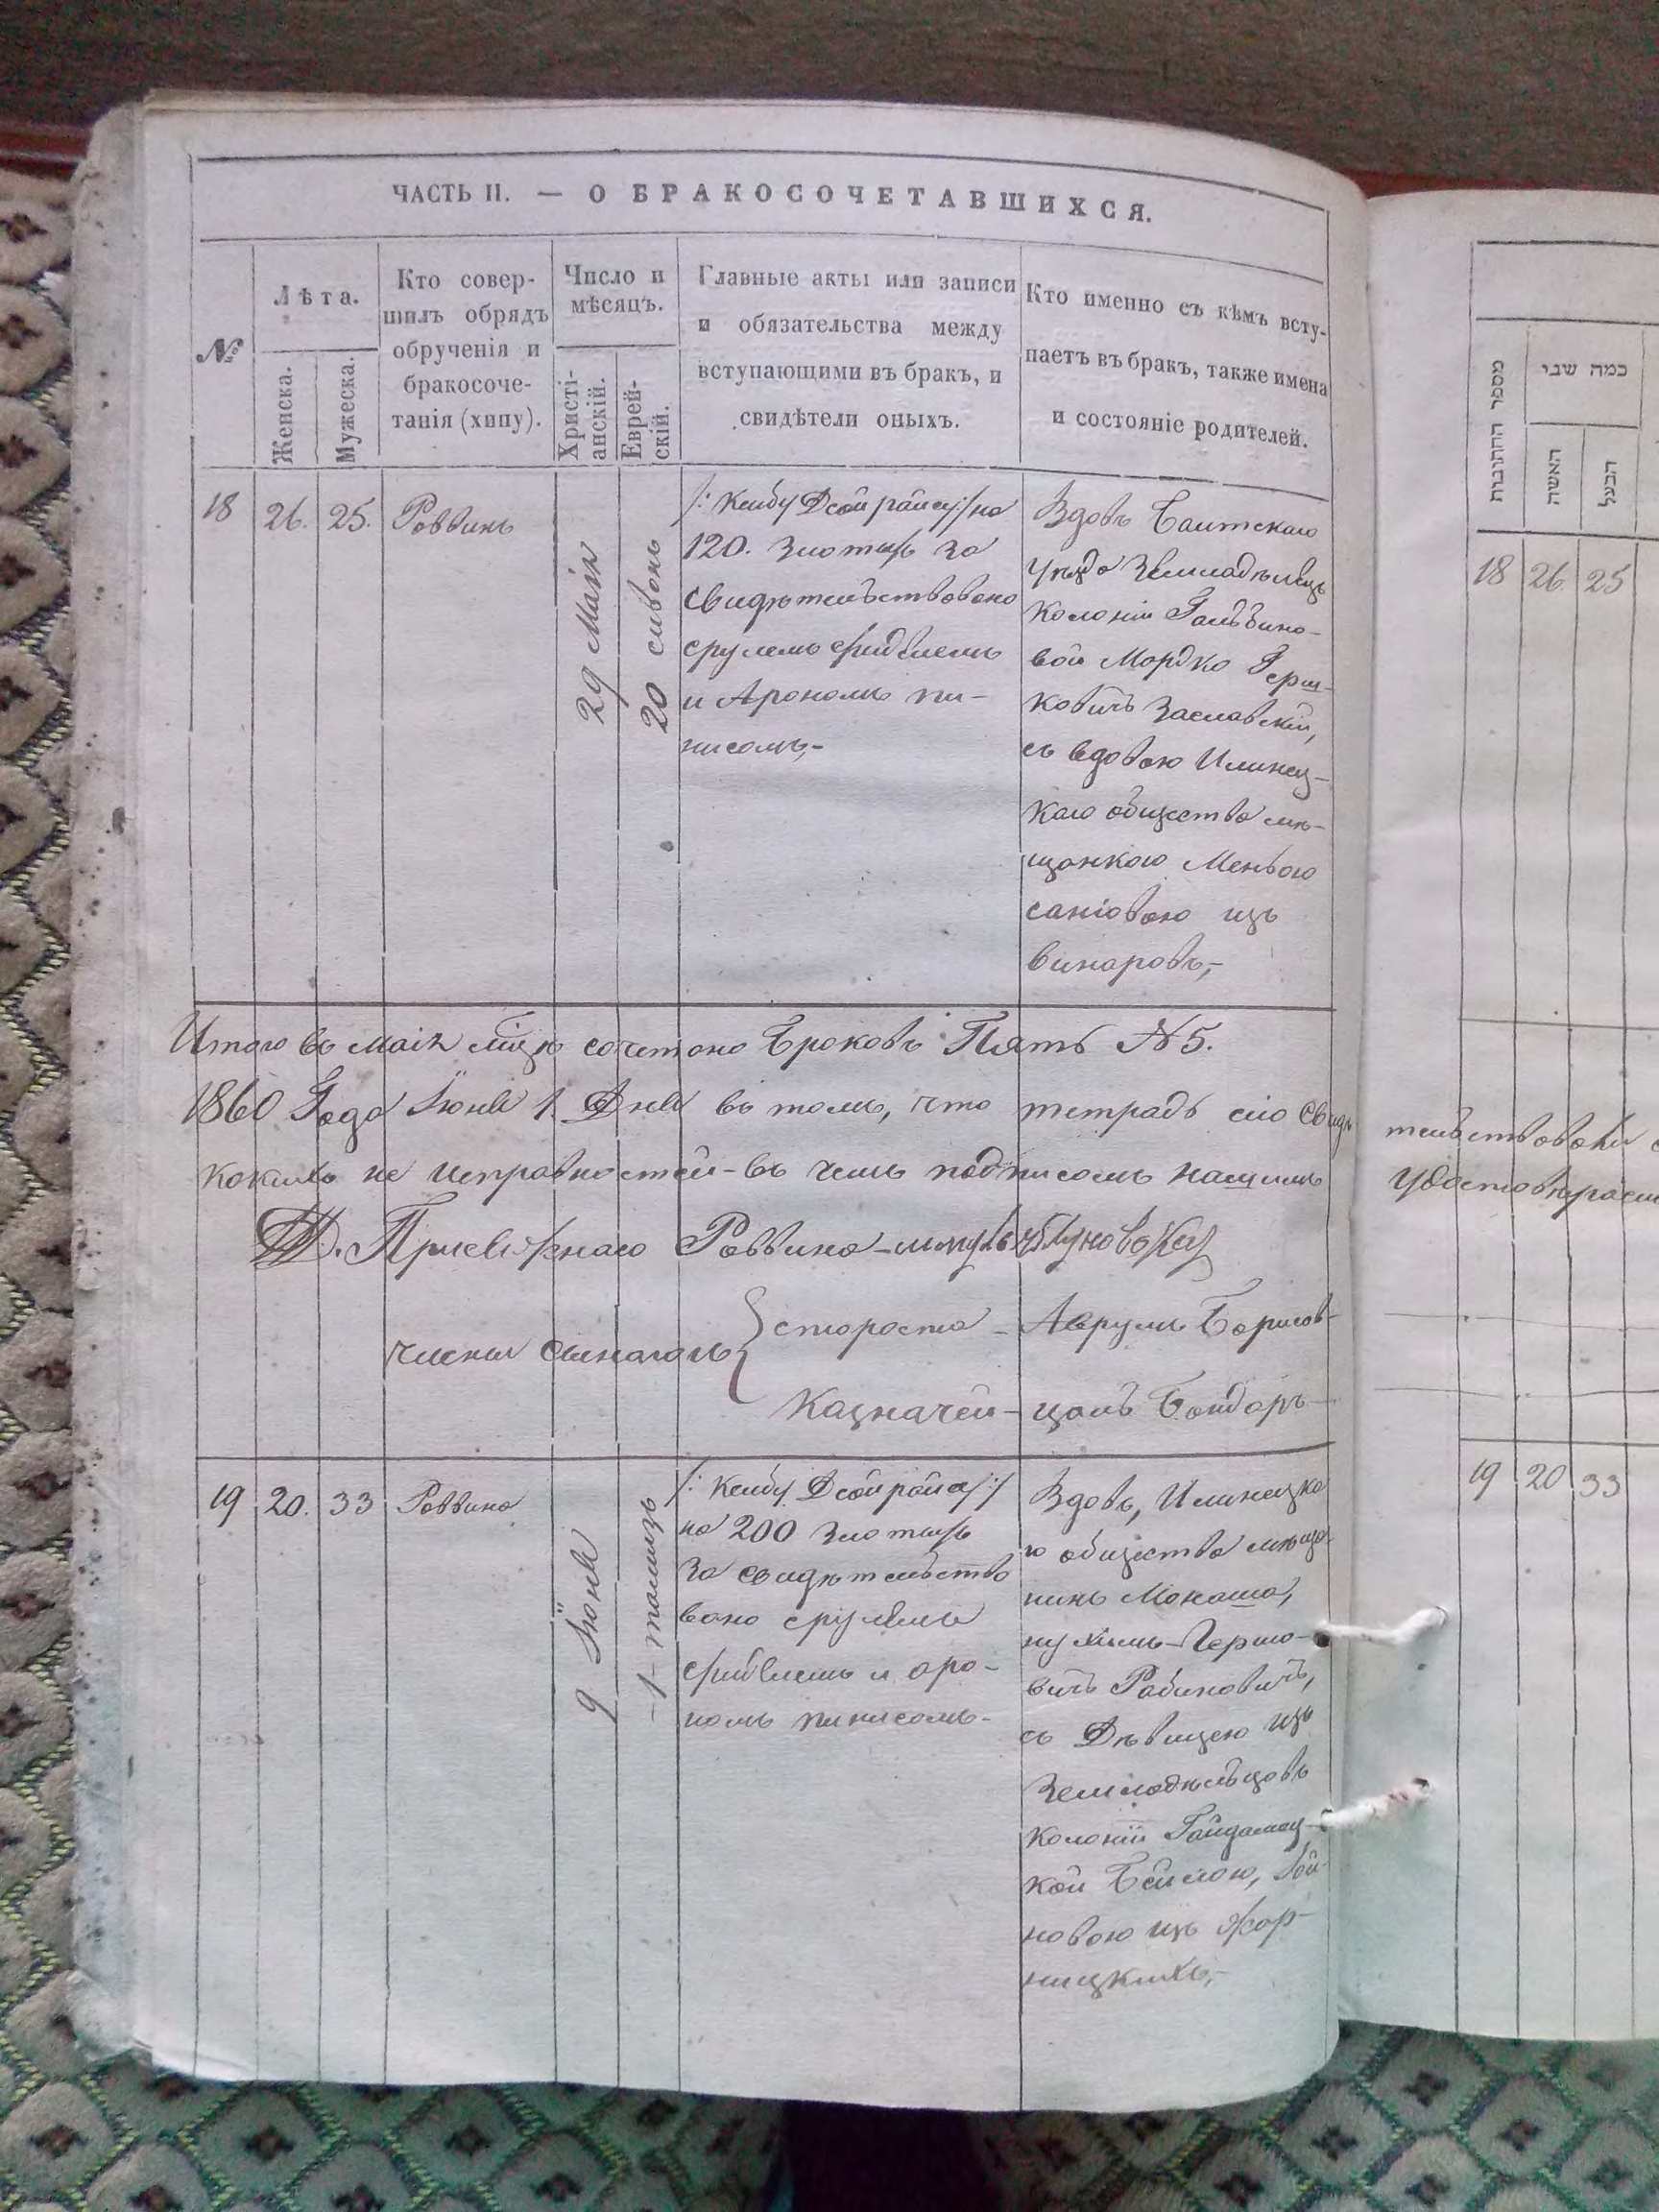 ЧАСТЬ II. — О БРАКОСОЧЕТАВШИХСЯ.
№
Лѣта.
Женска.
Мужеска.
Кто совер-
шилъ обрядъ
обрученія и
бракосоче-
танія (хипу).
Число и
мѣсяцъ.
Христі-
анскій.
Еврей-
скій.
Главные акты или записи
и обязательства между
вступающими въ бракъ, и
свидѣтели оныхъ.
Кто именно съ кѣмъ всту-
паетъ въ бракъ, также имена
и состояніе родителей.
18
26.
25.
Раввинъ
29 Маія
20 сивонь
/: Ксибу Дсойрайсу :/ на
120. злотыхъ за
свидѣтельствовано
срулемъ
и Арономъ пи-
нисомъ,-
Вдовъ Балтскаго
уѣзда Земледѣлецъ
колоніи
вой Мордко Герш-
ковичъ Заславскій,
съ вдовою Илинец-
каго общества мѣ-
щанкою Меньою
саніовою изъ
винаровъ,-
Итого въ маія мцѣ сочетано Браковъ Пять № 5.
1860 Года Іюня 1. Дня въ томъ, что тетрадь сію свидѣ
какихъ не исправностей - въ чемъ подписомъ нашимъ
Присяжнаго Раввина -
члены синагоги
староста - Аврумъ Борисов-
Казначей - цаль Бондарь -
19
20.
33
Раввина
9 Іюня
- 1 - тамизъ
/: Ксибу Дсойрайсу :/
на 200 злотыхъ
за свидѣтельство
вано срулемъ
и аро-
номъ пинисомъ -
Вдовъ, Илинецка
го общества мѣща-
нинъ Монаша,
нухимъ - Гершо-
вичъ Рабиновичъ,
съ Дѣвицею изъ
Земледѣльцовъ
колоніи Гайдамац-
кой Бейлою,
новою изъ Жор-
ницкихъ,-
מספר החתונות
כמה שני
האשה
הבעל
18
26
25
тельствовали
удостовѣряем
19
20
33